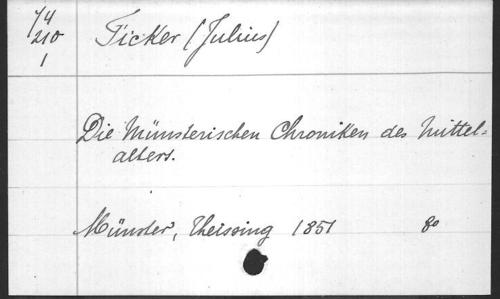 Y4
210
1
Ficker (Julius)
Die Münsterischen Chroniken des Mittel=
alters.
Münster, Theissing 1851 8o